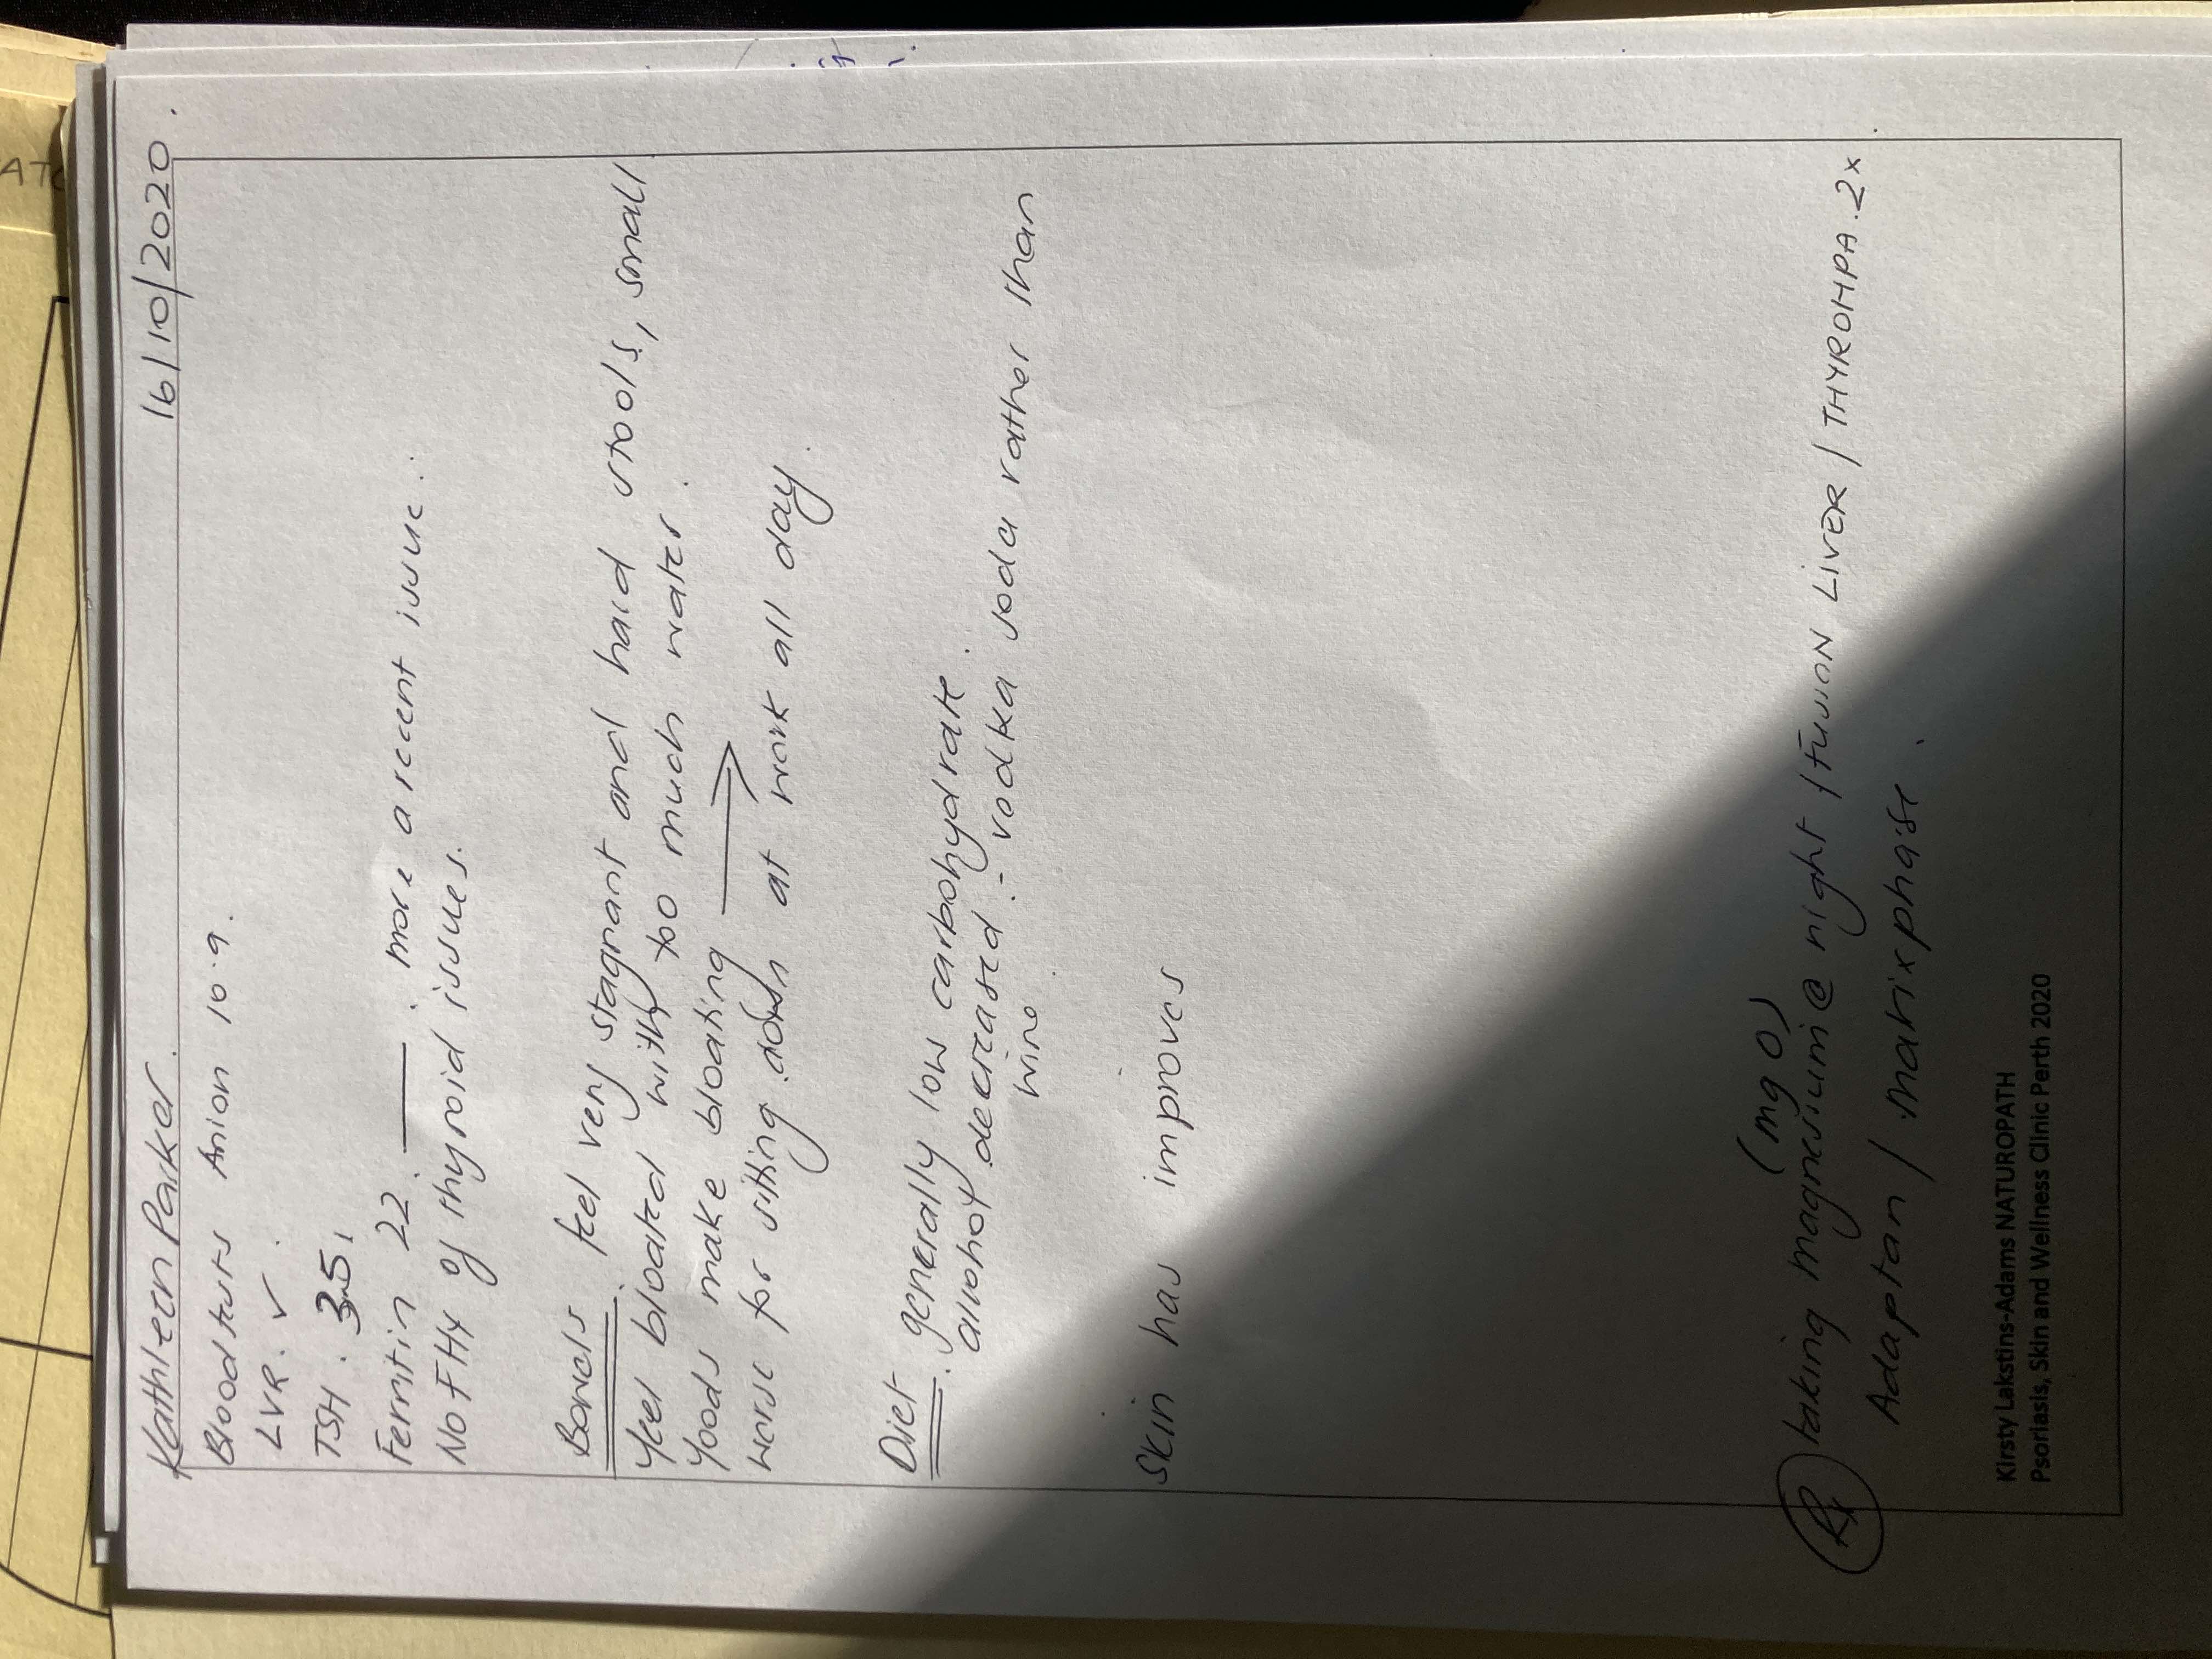 Kathleen Parker. 16/10/2020.
Blood tests Anion 10.9.
LVR. ✓
TSH. 3.5,
Ferritin 22. — . more a recent issue.
No FHx of thyroid issues.
Bowels. feel very stagnant and hard stools, small
feel bloated with too much water.
foods make bloating →
worse for sitting down at work all day.
Diet. generally low carbohydrate.
alcohol decreased - vodka soda rather than
wine
Skin has improves
(mg O)
Rx taking magnesium @ night / Fusion LIVER / THYROHPA. 2x
Adaptan / matrixphase.
Kirsty Lakstins-Adams NATUROPATH
Psoriasis, Skin and Wellness Clinic Perth 2020